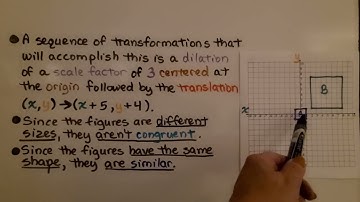 A sequence of transformations that
will accomplish this is a dilation
of a scale factor of 3 centered at
the origin followed by the translation
(x,y)→(x+5,y+4).
Since the figures are different
sizes, they aren't congruent.
Since the figures have the same
shape, they are similar.
y
x
B